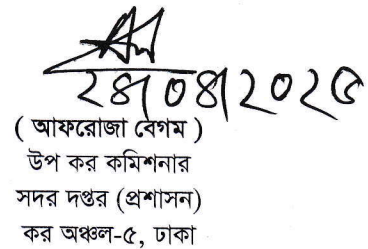 ২৪/০৪/২০২৫
( আফরোজা বেগম )
উপ কর কমিশনার
সদর দপ্তর (প্রশাসন)
কর অঞ্চল-৫, ঢাকা